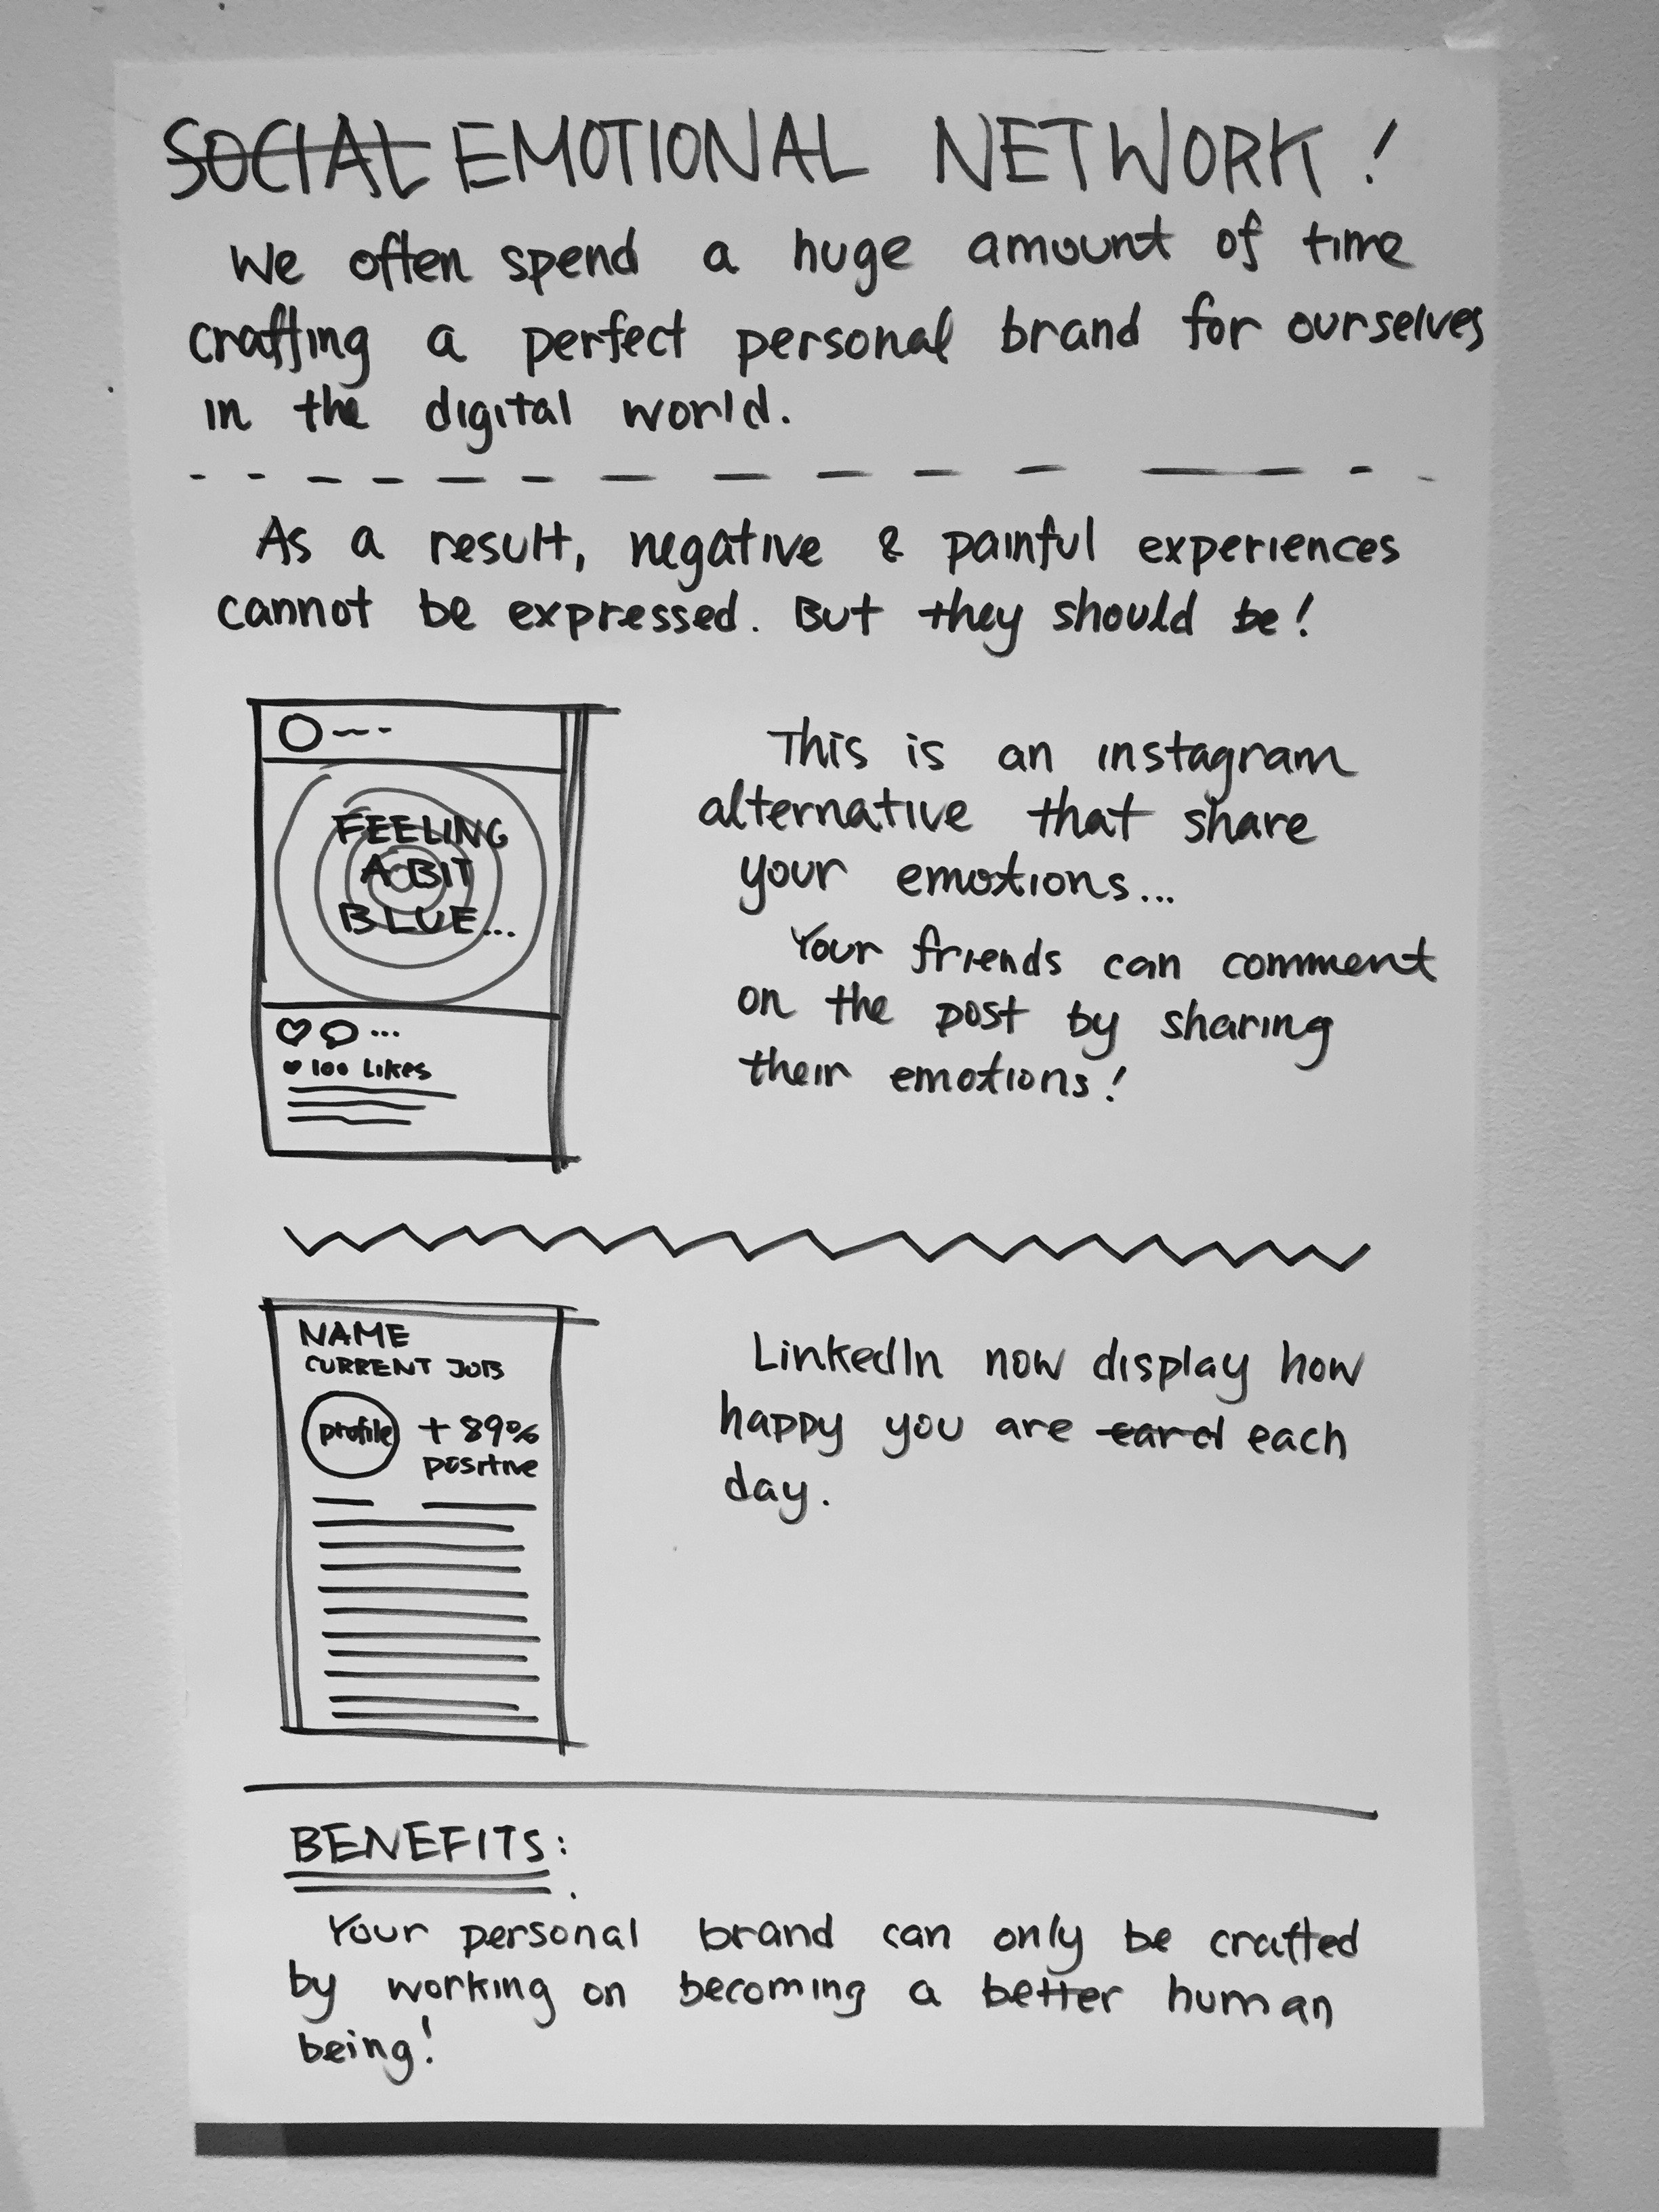 SOCIAL EMOTIONAL NETWORK!
We often spend a huge amount of time
crafting a perfect personal brand for ourselves
in the digital world.
As a result, negative & painful experiences
cannot be expressed. But they should be!
FEELING
A BIT
BLUE...
...
100 Likes
This is an instagram
alternative that share
your emotions...
Your friends can comment
on the post by sharing
their emotions!
NAME
CURRENT JOB
profile + 89%
positive
LinkedIn now display how
happy you are each
day.
BENEFITS:
Your personal brand can only be crafted
by working on becoming a better human
being!